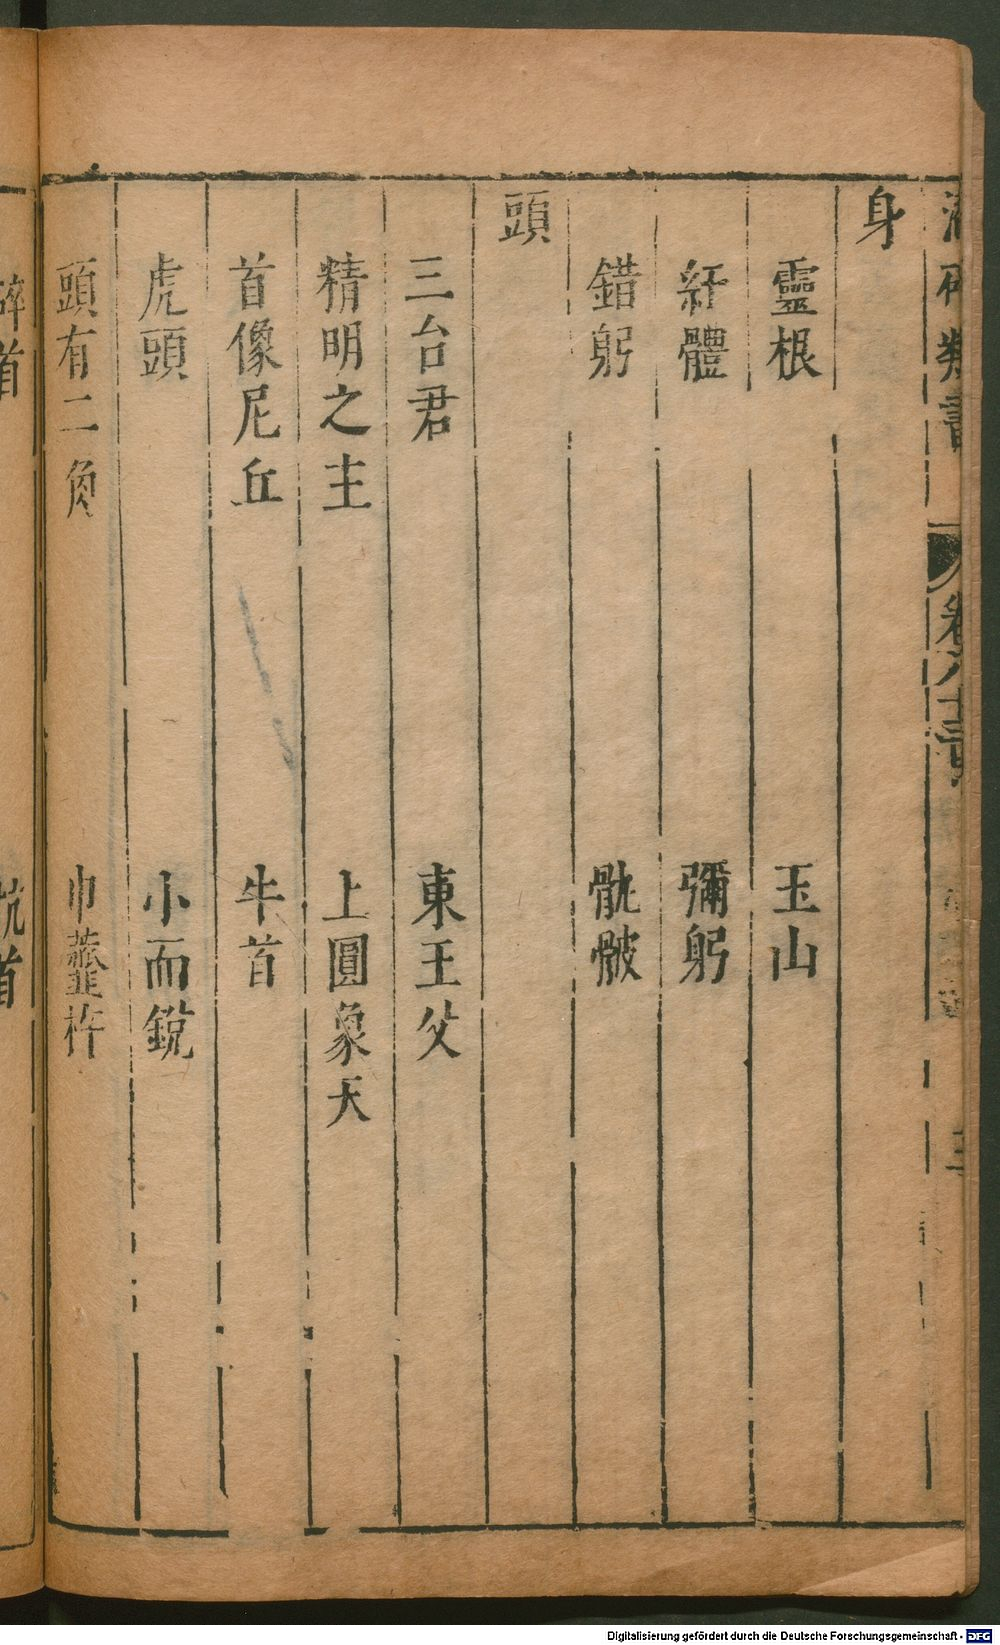 身
靈根 玉山
紆體 彌躬
錯躬 骩骳
頭
三台君 東王父
精明之主 上圓象天
首像尼丘 牛首
虎頭 小而銳
頭有二角 巾虀杵
首
首
Digitalisierung gefördert durch die Deutsche Forschungsgemeinschaft - DFG